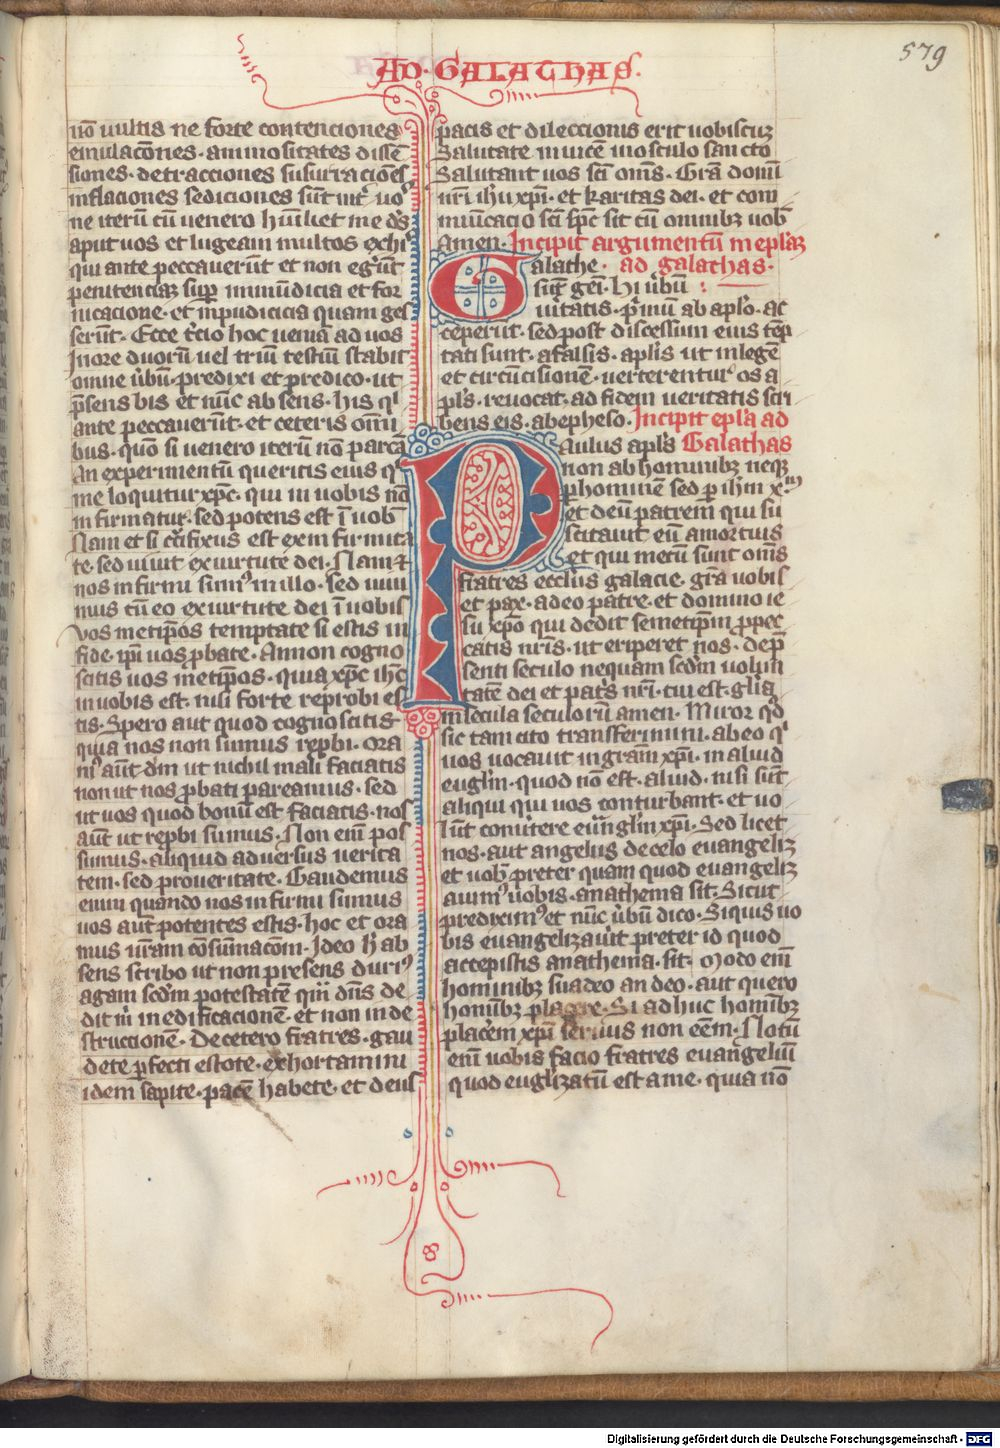 579
AD · GALATHAS ·
nō uultis ne forte contenciones
emulacōnes · animositates dissē
siones · detracciones susurraciōes
inflaciones sediciones sūnt int̄ uoꝰ
ne iterū cū uenero hūīliet me dꝰs
aput uos et lugeam multos ex hiꝰ
qui ante peccauerūt et non egꝰūt
penitenciaꝫ sup̱ inmūdicia et for
nicacione · et inpudicicia quam ges
serūt · Ecce t̄cio hoc ueniā ad uos
Jn ore duorū uel triū testiū stabit
omne ūbū · predixi et predico · ut
p̄sens bis et nūc absens · his qⁱ
ante peccauerūt · et ceteris omī
bus · quō si uenero iterū nō parcā
An experimentū queritis eius qⁱ
me loquitur xp̄c · qui in uobis nō
infirmatur · sed potens est ī uob̄
Nam et si c̄cifixus est ex infirmita
te · sed uiuit ex uirtute dei · Nam ⁊
nos infirmi sumꝰ in illo · sed uiui
mus cū eo ex uirtute dei ī uobis
Vos metip̄os temptate si estis in
fide · ip̄i uos ꝓbate · An non cogno
scitis uos metip̄os · quia xp̄c ih̄c
in uobis est · nisi forte reprobi es
tis · Spero aut quod cognoscitis
quia nos non sumus rep̄bi · Ora
mꝰ aūt dm̄ ut nichil mali faciatis
non ut nos ꝓbati pareamus · sed
ut uos quod bonū est faciatis · nos
aūt ut rep̄bi simus · Non eīm pos
sumus · aliquid aduersus uerita
tem · sed pro ueritate · Gaudemus
enim quando nos infirmi sumus
uos aūt potentes estis · hoc et ora
mus ur̄am cōsūmacōm · Jdeo h̄ ab
sens scribo ut non presens duriꝰ
agam scd̄m potestatē quā dn̄s de
dit m̄ in edificacionē · et non in de
struccionē · De cetero fratres · gau
dete ꝑfecti estote · exhortamini
idem sapite · pacē habete · et deus
pacis et dileccionis erit uobiscuꝫ
Salutate inuicē in osculo sancto
Salutant uos sc̄i om̄s · Gr̄a domī
nr̄i ih̄u xp̄i · et karitas dei · et com
mūicacio sc̄i sp̄c sit cū omnibꝫ uob̄
Amen · Jncipit argumentū in ep̄laꝫ
Galathe · ad galathas ·
sūt gēi · Hi ūbū
ūitatis · p̄mū ab ap̄lo · ac
ceperūt · sed post discessum eius tēp
tati sunt · a falsis · ap̄lis ut in legē
et circūcisionē · uerterentur os a
pl̄s · reuocat · ad fidem ueritatis scri
bens eis · ab epheso · Jncipit ep̄la ad
Paulus apl̄s Galathas
non ab hominibꝫ neqꝫ
ꝑ hominē sed ꝑ ih̄m x̄m
et deū patrem qui su
scitauit eū a mortuis
et qui mecū sunt om̄s
fratres eccl̄iis galacie · gr̄a uobis
et pax · a deo patre · et domino ie
su xp̄o qui dedit semetip̄m ꝓ pec
catis nr̄is · ut eriperet nos · de p̄
senti seculo nequam scd̄m uolun
tatē dei et pat̄s nr̄i · cui est · gl̄ia
in secula seculorū amen · Miror qd̄
sic tam cito transferimini · ab eo qⁱ
uos uocauit in gr̄am xp̄i · in aliud
eugl̄m · quod nō est · aliud · nisi sūt
aliqui qui uos conturbant · et uo
lūt conūtere euūgl̄m xp̄i · Sed licet
nos · aut angelus de celo euangeliꝫ
et uob̄ preter quam quod euangeliꝫ
auimꝰ uobis · anathema sit · Sicut
prediximꝰ et nūc ūbū dico · Siquis uo
bis euangelizaūit preter id quod
accepistis anathema · sit · Modo enī
hominibꝫ suadeo an deo · aut quero
homībꝫ placere · Si adhuc homībꝫ
placerem xp̄i seruus non eēm · Notū
enī uobis facio fratres euangeliū
quod eugl̄izatū est a me · quia nō
Digitalisierung gefördert durch die Deutsche Forschungsgemeinschaft - DFG